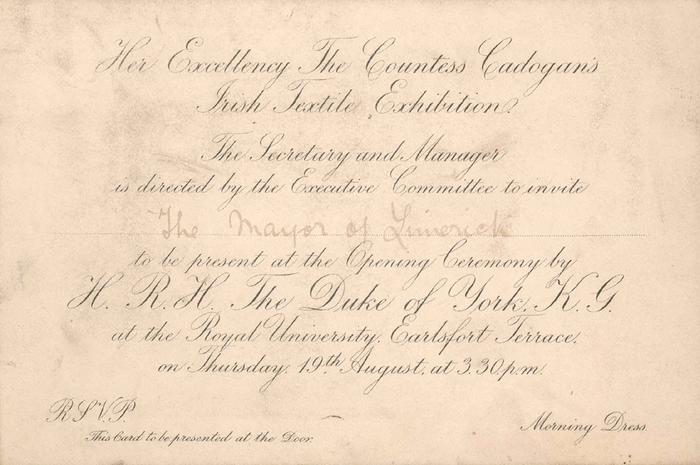 Her Excellency The Countess Cadogan's
Irish Textile Exhibition.
The Secretary and Manager
is directed by the Executive Committee to invite
The Mayor of Limerick
to be present at the Opening Ceremony by
H. R. H. The Duke of York, K. G.
at the Royal University, Earlsfort Terrace,
on Thursday, 19th August, at 3.30 p.m.
R.S.V.P.
Morning Dress.
This Card to be presented at the Door.